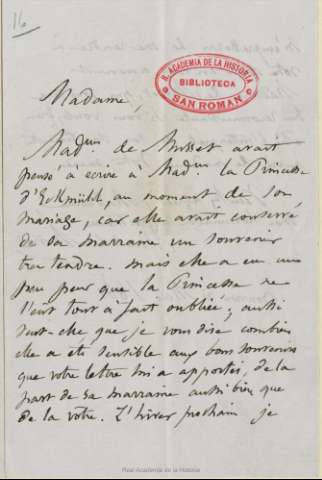 16
R. ACADEMIA DE LA HISTORIA
BIBLIOTECA
SAN ROMAN
Madame,
Mad^me de Musset avait
pensé à écrire à Mad^me la Princesse
d'Eckmühl, au moment de son
mariage, car elle avait conservé
de sa marraine un souvenir
très tendre. mais elle a eu un
peu peur que la Princesse ne
l'eut tout à fait oubliée; aussi
veut-elle que je vous dise combien
elle a été sensible aux bons souvenirs
que votre lettre lui a apportés, de la
part de sa marraine aussi bien que
de la votre. L'hiver prochain je
Real Academia de la Historia